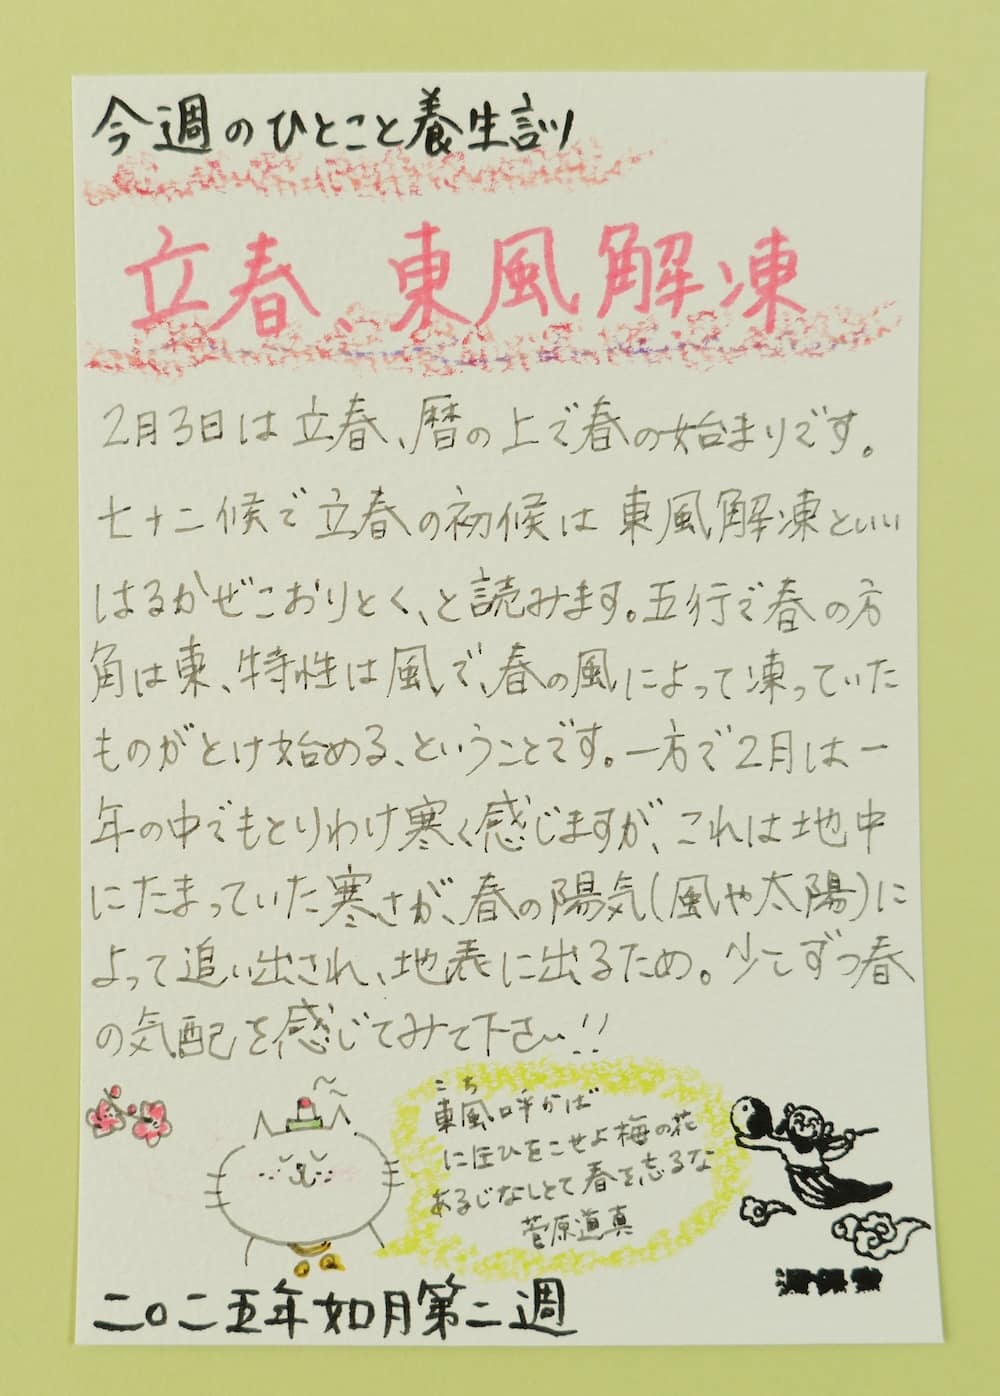 今週のひとこと養生訓
立春、東風解凍
2月3日は立春、暦の上で春の始まりです。
七十二候で立春の初候は東風解凍といい
はるかぜこおりとく、と読みます。五行で春の方
角は東、特性は風で、春の風によって凍っていた
ものがとけ始める、ということです。一方で2月は一
年の中でもとりわけ寒く感じますが、これは地中
にたまっていた寒さが、春の陽気(風や太陽)に
よって追い出され、地表に出るため。少しずつ春
の気配を感じてみて下さい!!
こち
東風呼かば
に圧ひをこせよ梅の花
あるじなしとて春を忘るな
菅原道真
二〇二五年如月第二週